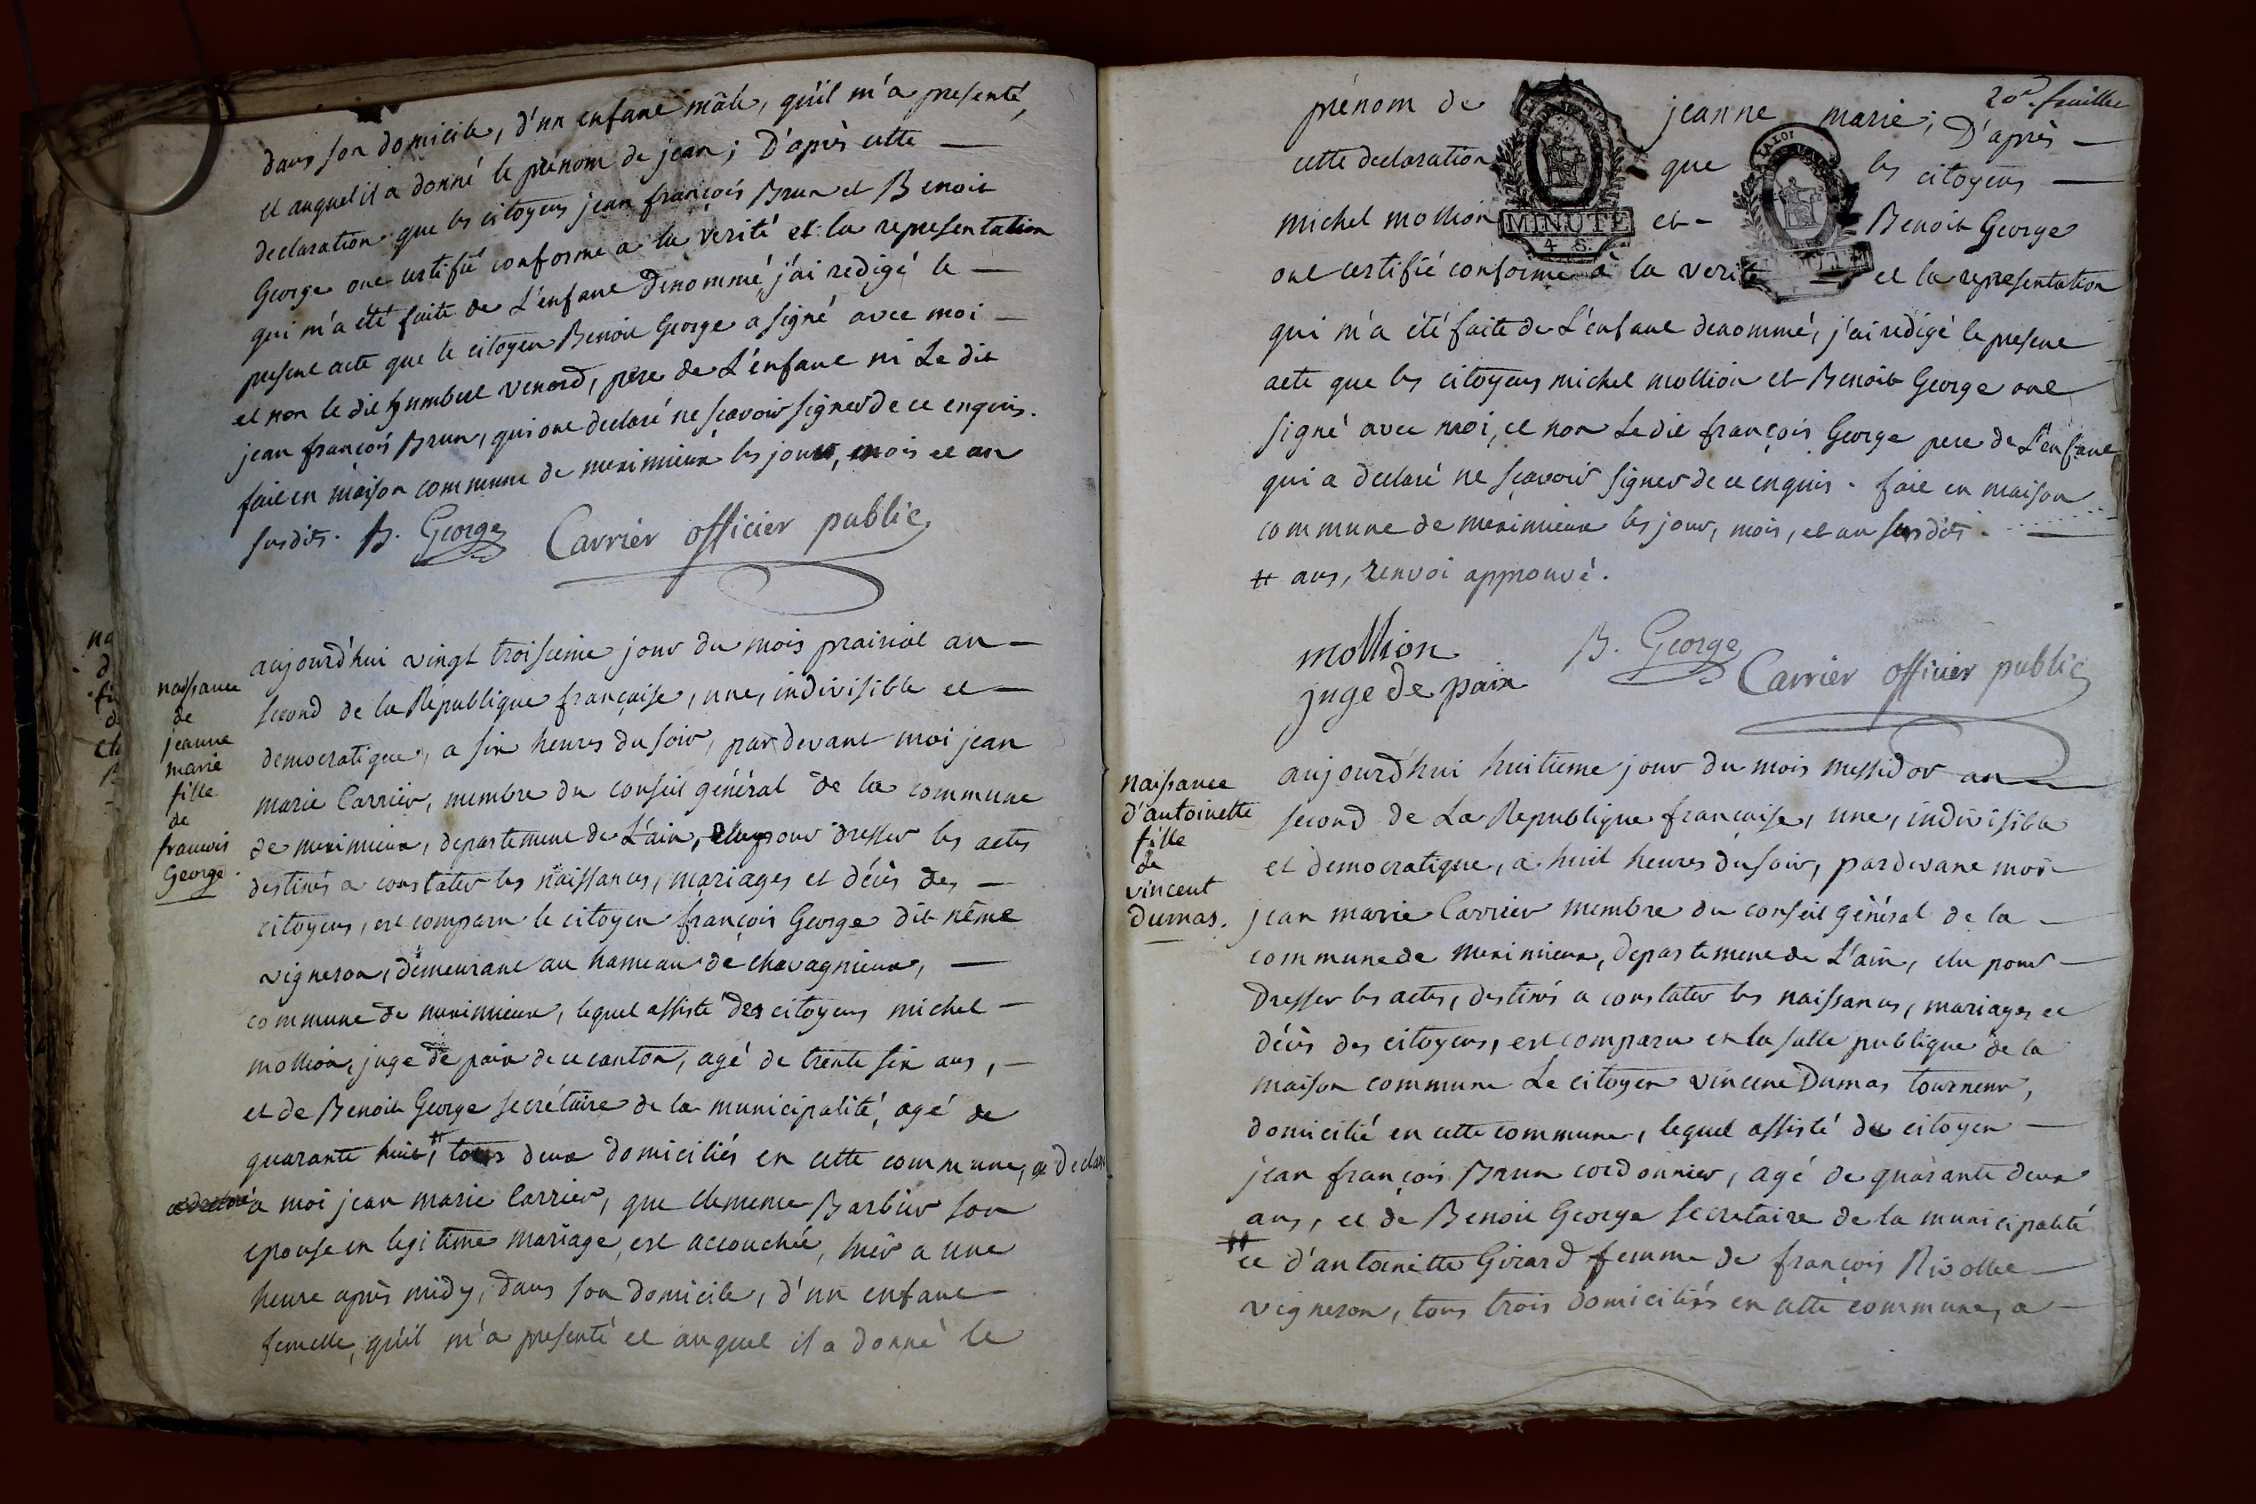 dans son domicile, d'un enfant mâle, qu'il m'a presenté,
et auquel il a donné le prénom de jean; D'après cette —
declaration que les citoyens jean françois Brun et Benoit
George ont certifié conforme a la verité et la representation
qui m'a été faite de L'enfant denommé, j'ai redigé le —
present acte que le citoyen Benoit George a signé avec moi —
et non le dit humbert venard, père de L'enfant ni Le dit
jean françois Brun, qui ont declaré ne sçavoir signer de ce enquis.
fait en maison commune de meximieux les jour, mois et an
susdits. B. George Carrier officier public
naissance
de
jeanne
marie
fille
de
francois
George.
aujourd'hui vingt troisieme jour du mois prairial an —
second de la République française, une, indivisible et —
democratique, a six heures du soir, par devant moi jean
marie Carrier, membre du conseil général de la commune
de meximieux, departement de L'ain, elu pour dresser les actes
destinés a constater les naissances, mariages et décès des —
citoyens, est comparu le citoyen françois George dit même
vigneron, demeurant au hameau de chavagnieux, —
commune de meximieux, lequel assisté des citoyens michel —
mollion, juge de paix de ce canton, agé de trente six ans, —
et de Benoit George secrétaire de la municipalité, agé de
quarante huit, # tous deux domiciliés en cette commune, a declaré
a moi jean marie Carrier, que clemence Barbier son
epouse en legitime mariage, est accouchée, hier a une
heure après midy, dans son domicile, d'un enfant —
femelle, qu'il m'a presenté et auquel il a donné le
20e. feuillet
prénom de jeanne marie; D'après —
cette declaration que les citoyens —
michel mollion et - Benoit George
MINUTE
4 S.
LA LOI
ont certifié conforme à la verité et la representation
qui m'a été faite de L'enfant denommé, j'ai redigé le present
acte que les citoyens michel mollion et Benoit George ont
signé avec moi, et non Le dit françois George pere de L'enfant
qui a declaré ne sçavoir signer de ce enquis. fait en maison
commune de meximieux les jour, mois, et an susdits.
# ans, renvoi approuvé.
mollion B. George Carrier officier public
juge de paix
naissance
d'antoinette
fille
de
vincent
Dumas.
aujourd'hui huitieme jour du mois messidor an —
second de La Republique française, une, indivisible
et democratique, a huit heures du soir, pardevant moi
jean marie Carrier membre du conseil général de la —
commune de meximieux, departement de L'ain, elu pour —
dresser les actes, destinés a constater les naissances, mariages et
décès des citoyens, est comparu en la salle publique de la
maison commune Le citoyen vincent Dumas tourneur,
domicilié en cette commune, lequel assisté du citoyen —
jean françois Brun cordonnier, agé de quarante deux
ans, et de Benoit George secretaire de la municipalité
# et d'antoinette Girard femme de françois Rivollet —
vigneron, tous trois domiciliés en cette commune, a —